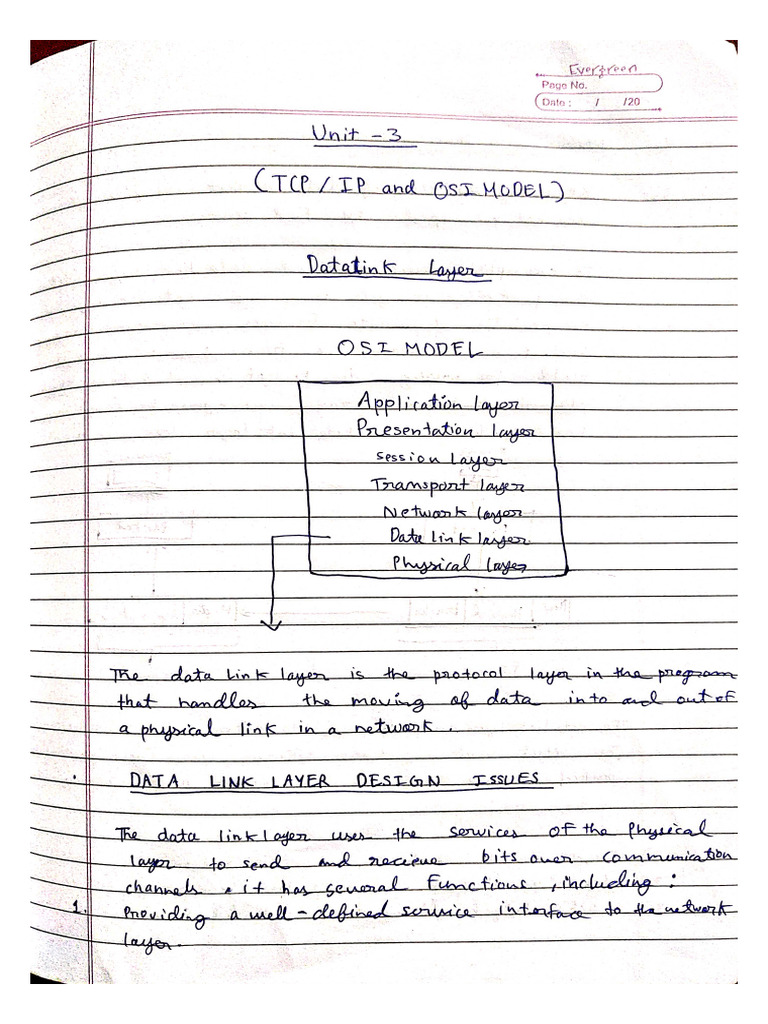 Evergreen
Page No.
Date : / /20
Unit - 3
(TCP / IP and OSI MODEL)
Datalink Layer
OSI MODEL
Application layer
Presentation layer
session layer
Transport layer
Network layer
Data link layer
Physical layer
The data link layer is the protocol layer in the program
that handles the moving of data into and out of
a physical link in a network.
DATA LINK LAYER DESIGN ISSUES
The data link layer uses the services of the Physical
layer to send and recieve bits over communication
channels. it has several functions, including:
1. Providing a well-defined service interface to the network
layer.